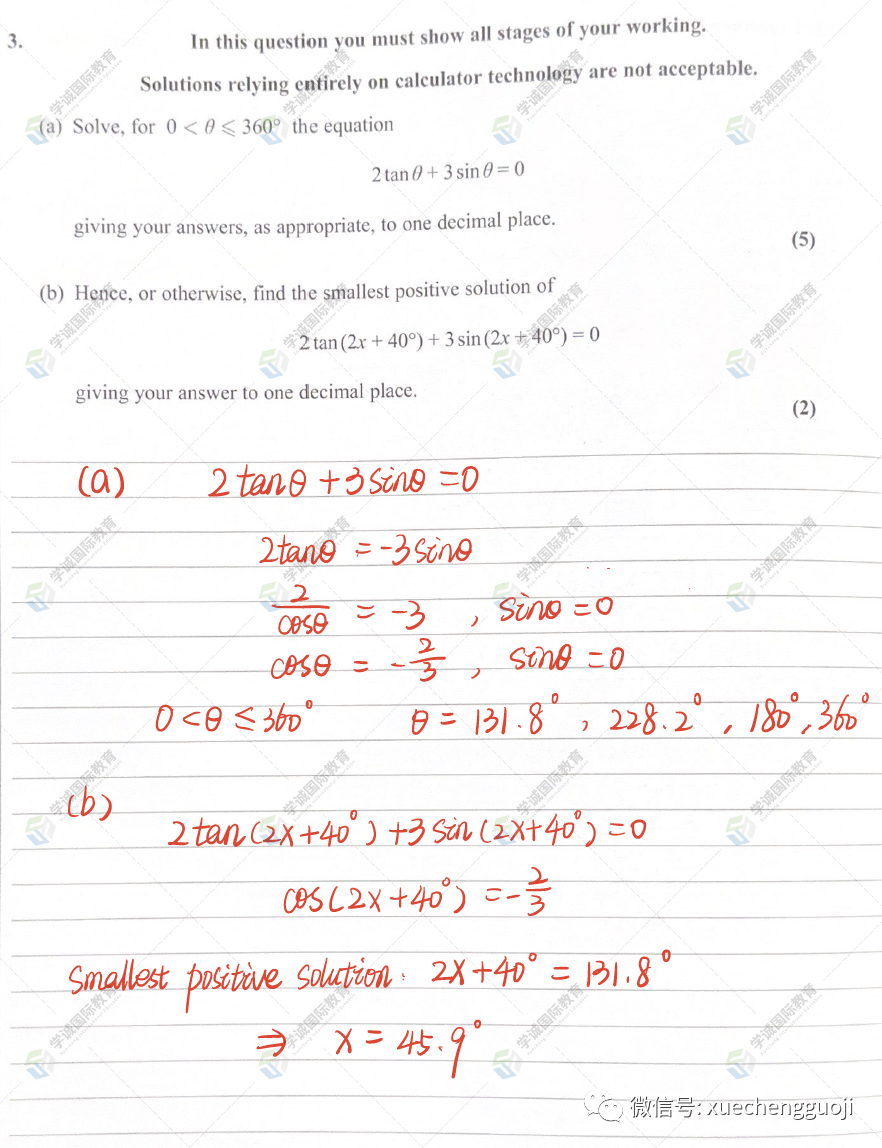 3.
In this question you must show all stages of your working.
Solutions relying entirely on calculator technology are not acceptable.
(a) Solve, for 0 < θ ⩽ 360° the equation
2 tan θ + 3 sin θ = 0
giving your answers, as appropriate, to one decimal place.
(5)
(b) Hence, or otherwise, find the smallest positive solution of
2 tan (2x + 40°) + 3 sin (2x + 40°) = 0
giving your answer to one decimal place.
(2)
(a) 2 tanθ + 3 sinθ = 0
2tanθ = -3 sinθ
2/cosθ = -3 , sinθ = 0
cosθ = -2/3 , sinθ = 0
0 < θ ≤ 360° θ = 131.8° , 228.2° , 180°, 360°
(b)
2 tan(2x+40°) + 3 sin(2x+40°) = 0
cos(2x+40°) = -2/3
Smallest positive solution: 2x+40° = 131.8°
⇒ x = 45.9°
学诚国际教育
微信号: xuechengguoji